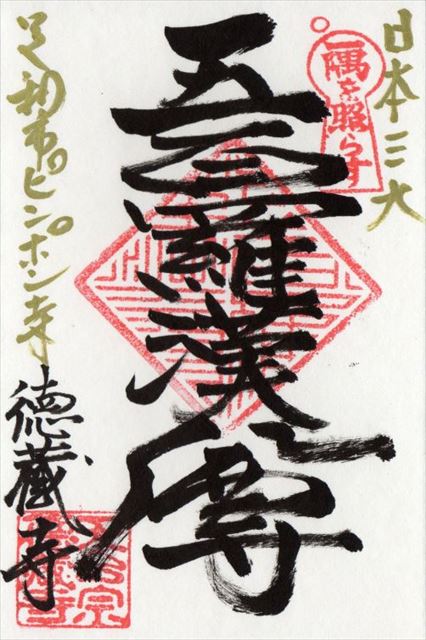 日本三大
一隅を照らす
五百羅漢尊
足利市ピンポン寺
徳蔵寺